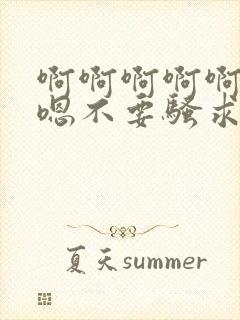 啊啊啊啊啊
嗯不要骚求
夏天summer